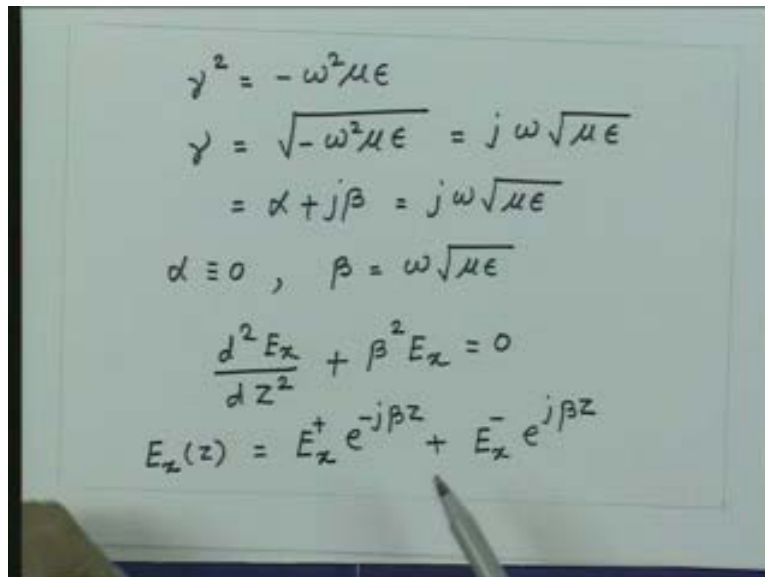 γ² = - ω²με
γ = √(- ω²με) = jω√(με)
= α + jβ = jω√(με)
α ≡ 0 , β = ω√(με)
d²Eₓ/dz² + β²Eₓ = 0
Eₓ(z) = Eₓ⁺ e^(-jβz) + Eₓ⁻ e^(jβz)